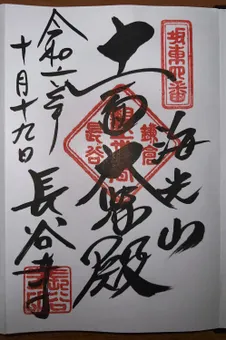 坂東四番
海光山
十一面大悲殿
鎌倉
長谷
長谷寺
令和六年
十月十九日